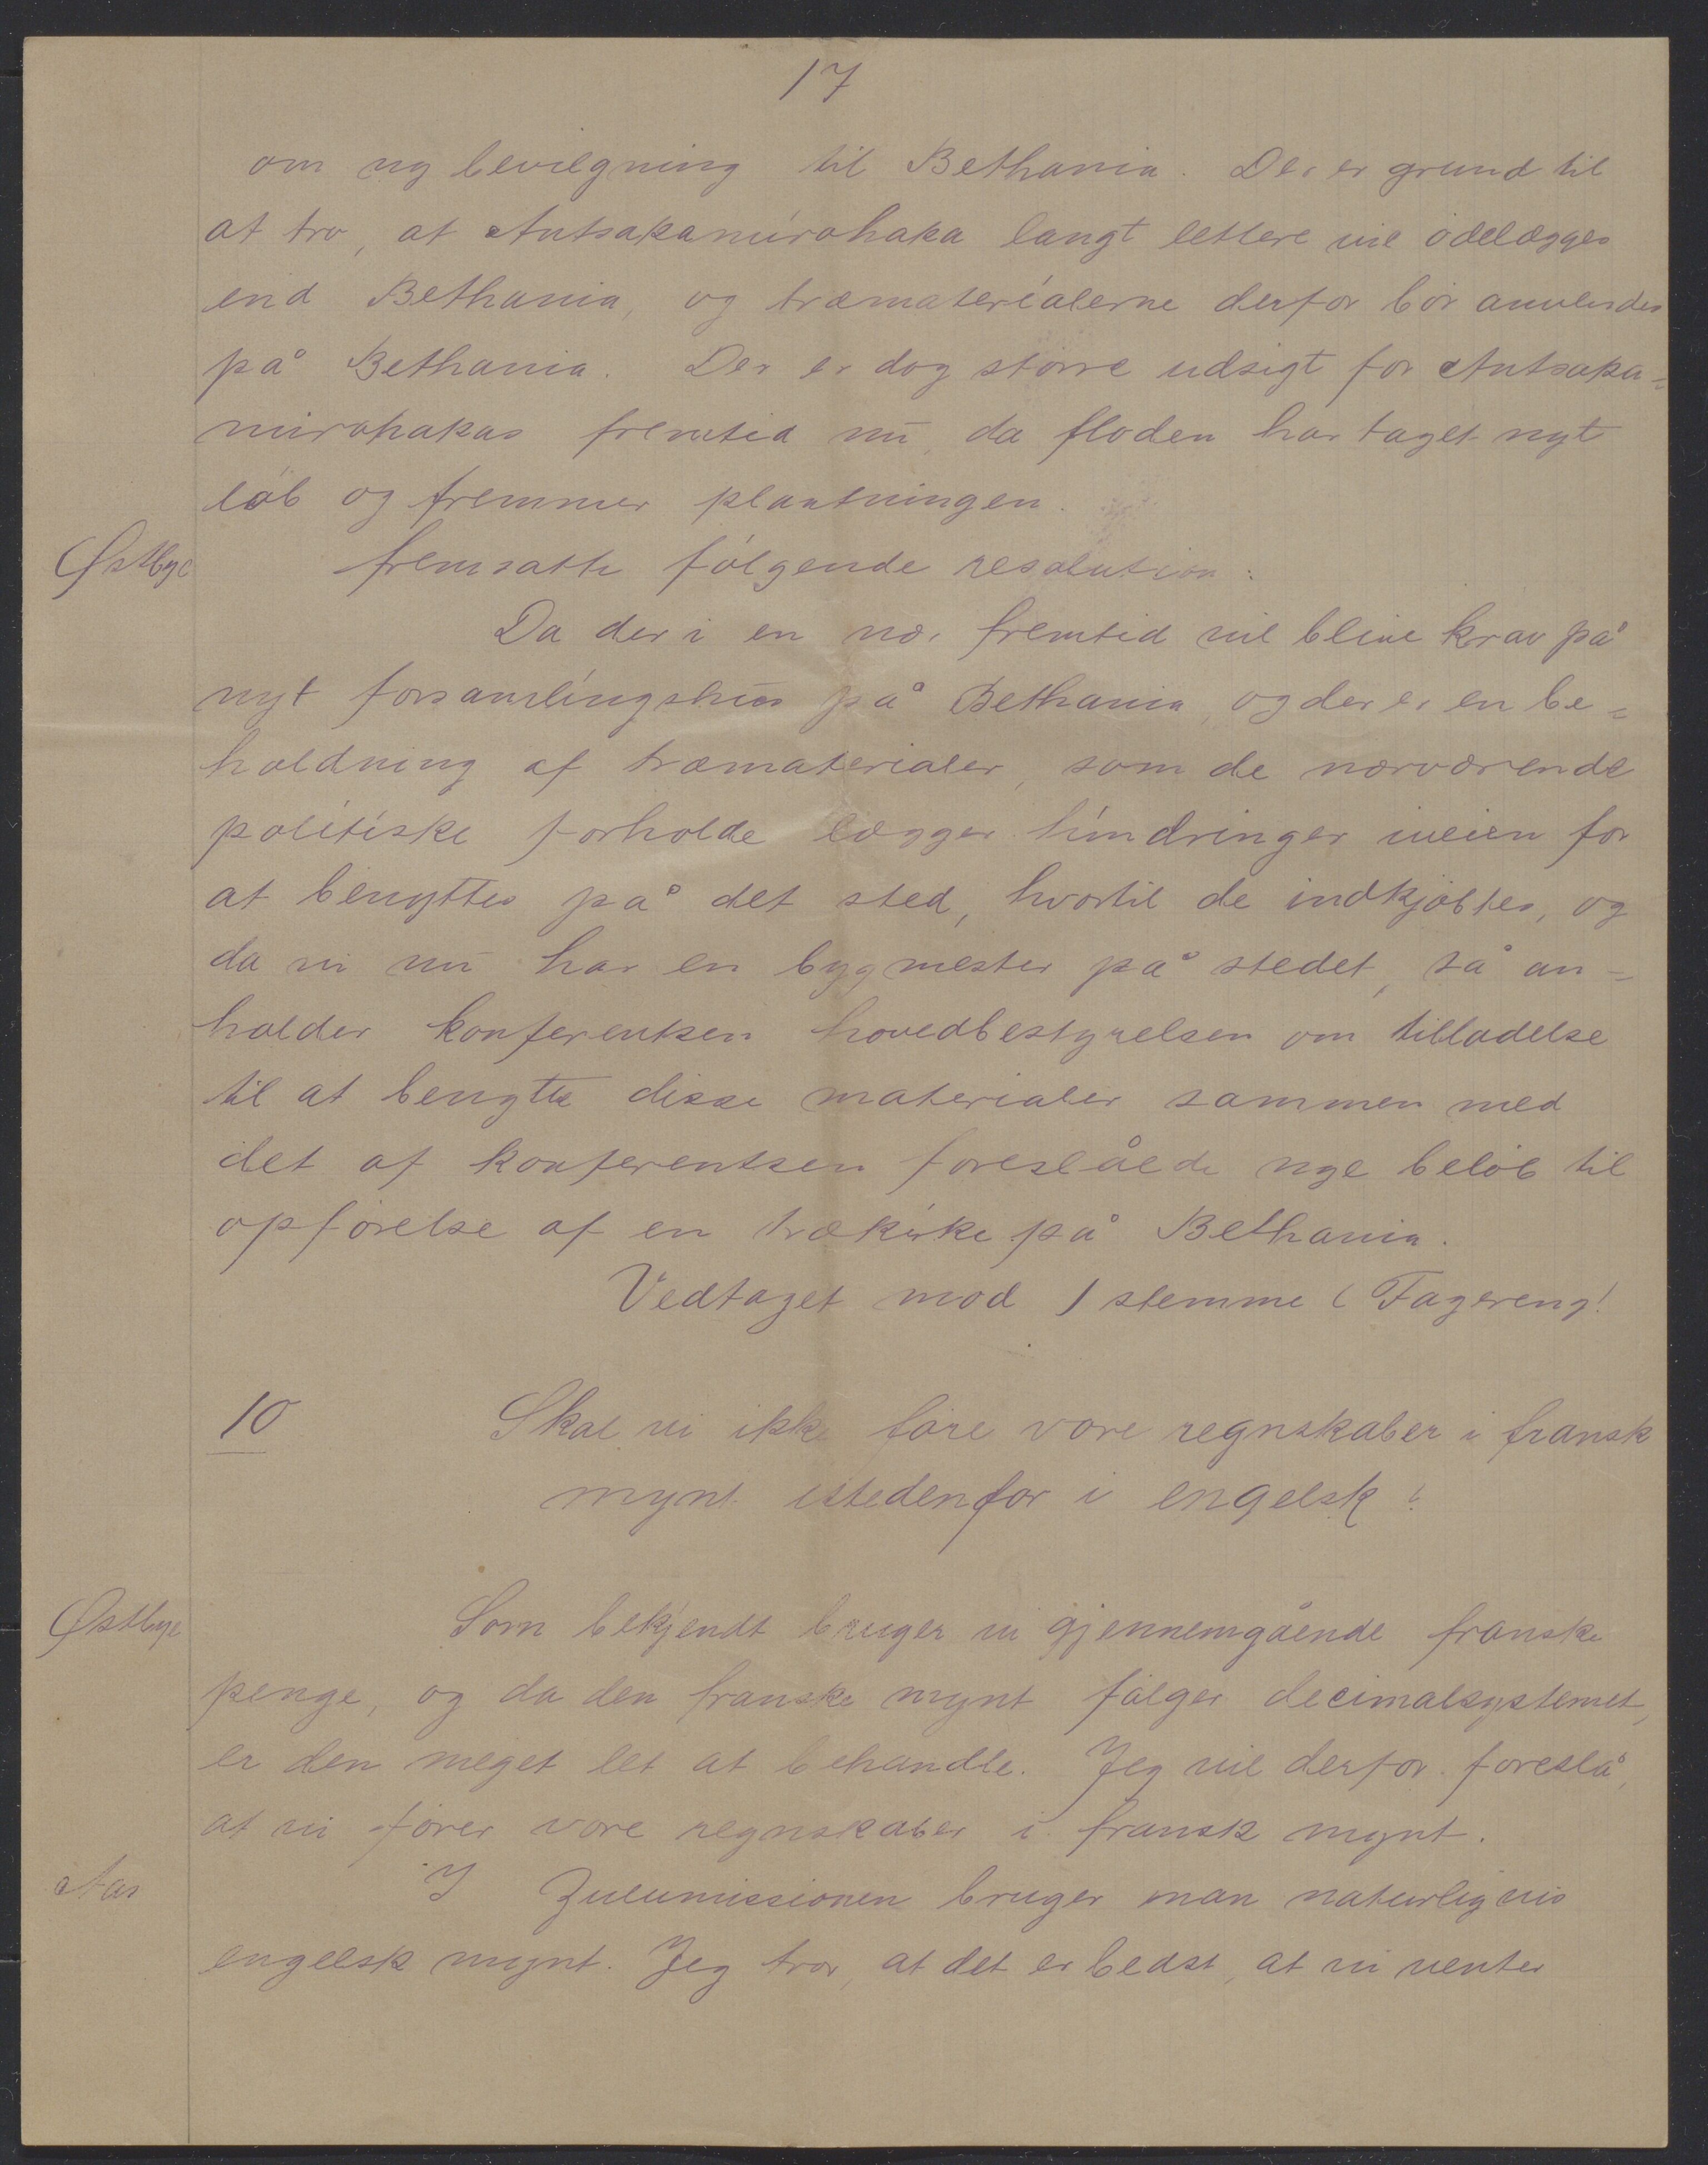 17
om ny bevilgning til Bethania. Der er grund til
at tro, at Antsakamirohaka langt lettere vil ödelægges
end Bethania, og træmaterialerne derfor bör anvendes
på Bethania. Der er dog större udsigt for Antsaka=
mirohakas fremtid nu, da floden har taget nyt
löb og fremmer plantningen.
Østbye fremsatte fölgende resolution:
Da der i en nær fremtid vil blive krav på
nyt forsamlingshus på Bethania, og der er en be=
holdning af træmaterialer, som de nærværende
politiske forholde lægger hindringer iveien for
at benyttes på det sted, hvortil de indkjöbtes, og
da vi nu har en bygmester på stedet, så an=
holder konferentsen hovedbestyrelsen om tilladelse
til at benytte disse materialer sammen med
det af konferentsen foreslåede nye belöb til
opförelse af en trækirke på Bethania.
Vedtaget mod 1 stemme (Fagereng!
10 Skal vi ikke före vore regnskaber i fransk
mynt istedenfor i engelsk?
Østbye Som bekjendt bruger vi gjennemgående franske
penge, og da den franske mynt fölger decimalsystemet,
er den meget let at behandle. Jeg vil derfor foreslå,
at vi förer vore regnskaber i fransk mynt.
Aas I Zulumissionen bruger man naturligvis
engelsk mynt. Jeg tror, at det er bedst, at vi venter